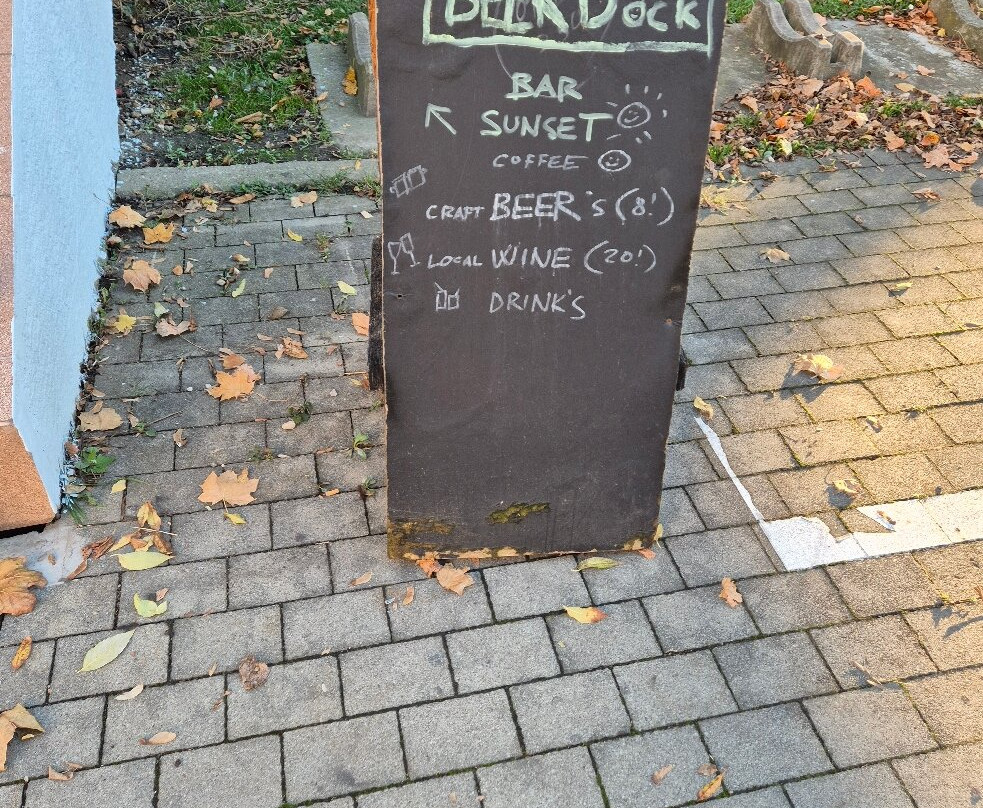 BEER DOCK
BAR
SUNSET
COFFEE
CRAFT BEER's (8!)
LOCAL WINE (20!)
DRINK'S